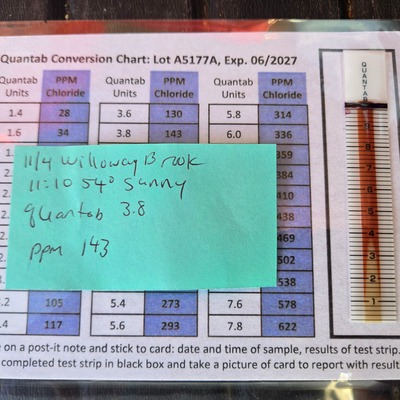 Quantab Conversion Chart: Lot A5177A, Exp. 06/2027
Quantab Units PPM Chloride Quantab Units PPM Chloride Quantab Units PPM Chloride
1.4 28 3.6 130 5.8 314
1.6 34 3.8 143 6.0 336
359
384
410
438
469
502
538
11/4 Willoway Brook
11:10 54° Sunny
Quantab 3.8
ppm 143
.2 105 5.4 273 7.6 578
.4 117 5.6 293 7.8 622
e on a post-it note and stick to card: date and time of sample, results of test strip.
completed test strip in black box and take a picture of card to report with result
QUANTAB
9
8
7
6
5
4
3
2
1